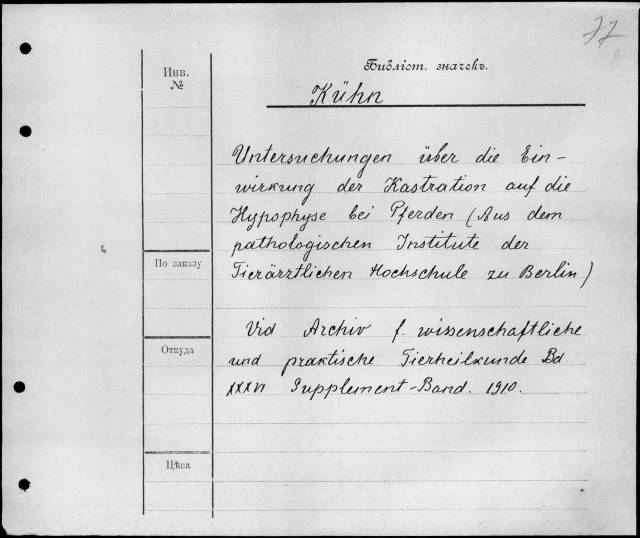 77
Инв.
№
Библіот. значекъ.
Kühn
Untersuchungen über die Ein-
wirkung der Kastration auf die
Hypophyse bei Pferden (Aus dem
pathologischen Institute der
Tierärztlichen Hochschule zu Berlin)
По заказу
Vid Archiv f. wissenschaftliche
und praktische Tierheilkunde Bd.
XXXVI Supplement-Band. 1910.
Откуда
Цѣна